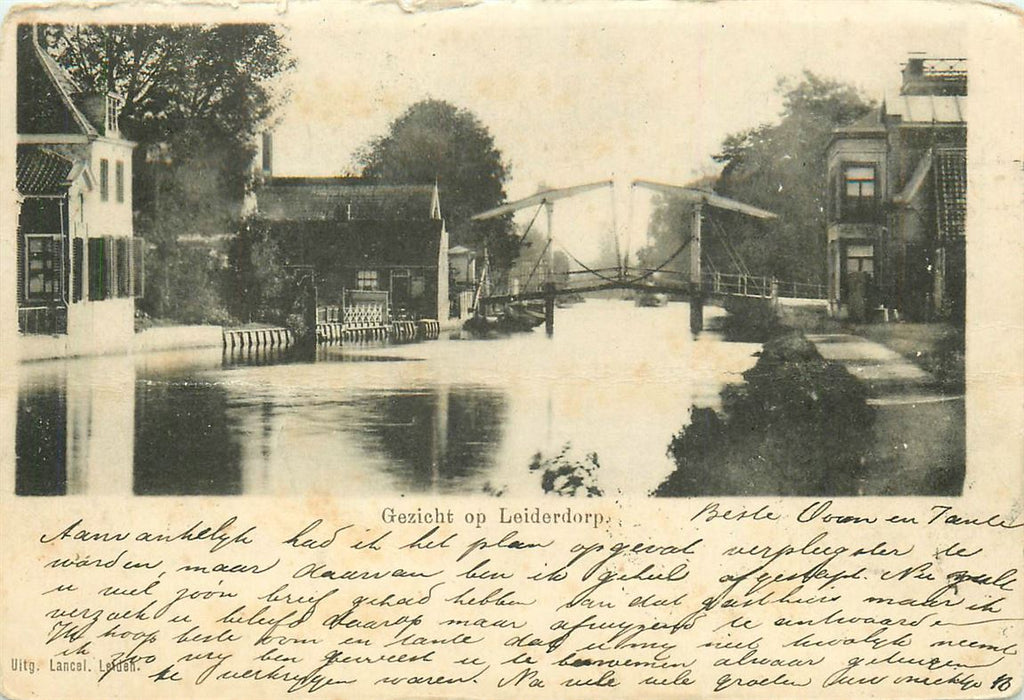 Gezicht op Leiderdorp.
Beste Oom en Tante
Aanvankelyk had ik het plan opgevat verpleegster te
worden, maar daarvan ben ik geheel afgestapt. Nu zult
u wel zoo'n brief gehad hebben van dat gasthuis maar ik
verzoek u beleefd daarop maar afwyzend te antwoorden
Ik hoop beste oom en tante dat u my niet kwalyk neemt
ik zoo vry ben geweest u te benoemen alwaar getuigen
te verkrygen waren. Na vele vele groeten Uw nichtje
Uitg. Lancel. Leiden.